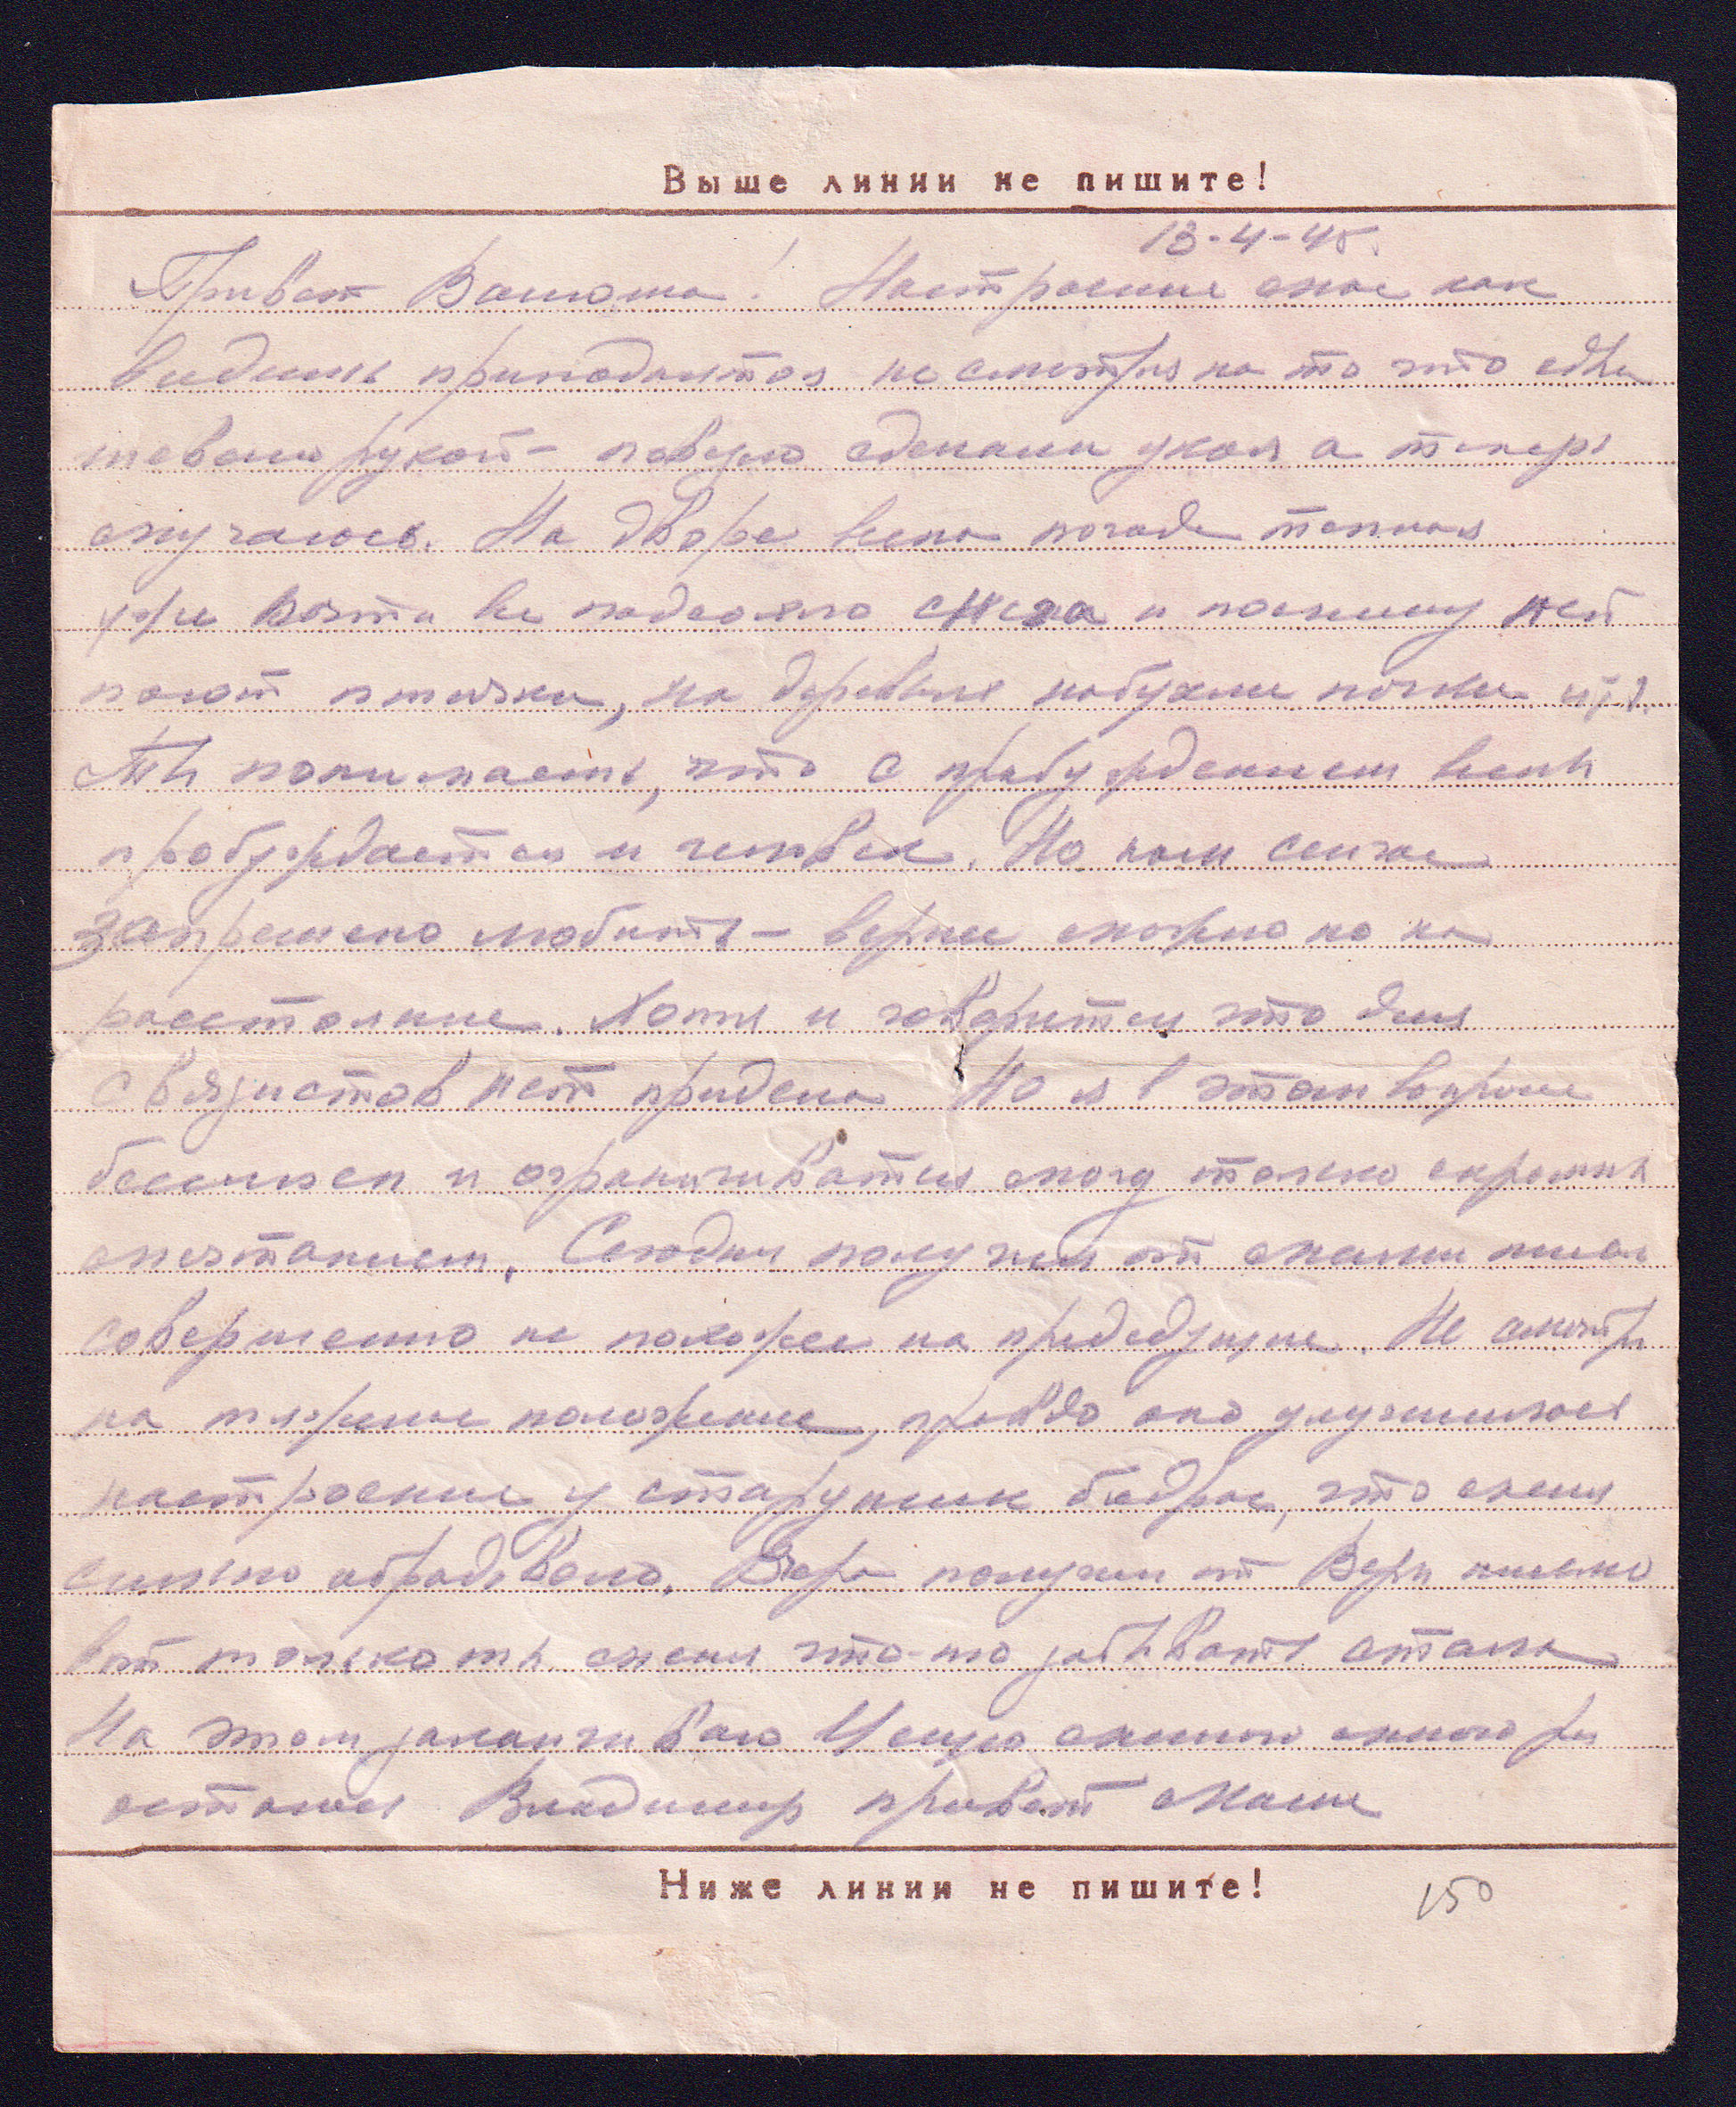 Выше линии не пишите!
13-4-45.
Привет Валюша! Настроение мое как
видишь приподнятое не смотря на то что едва
шевелю рукой- сделали укол а теперь
мучаюсь. На дворе весна погода теплая
уже почти все подсохло снега и помину нет
поют птички, на деревьях набухли почки и т.д.
Ты понимаешь, что с пробуждением весны
пробуждается и человек. Но нам сейчас
запрещено любить- вернее можно но на
расстояние. Хотя и говорится что для
связистов нет предела Но я в этом вопросе
бессилен и ограничиваться могу только скромным
мечтанием. Сегодня получил от мамы письмо
совершенно не похожее на предедущие. Не смотря
на тяжелое положение, правда оно улучшилось
настроение у старушки бодрое, что меня
сильно обрадовало. Вчера получил от Веры письмо
вот только ты меня что-то забывать стала
На этом заканчиваю Целую много много раз
остаюсь Владимир привет маме
Ниже линии не пишите!
150